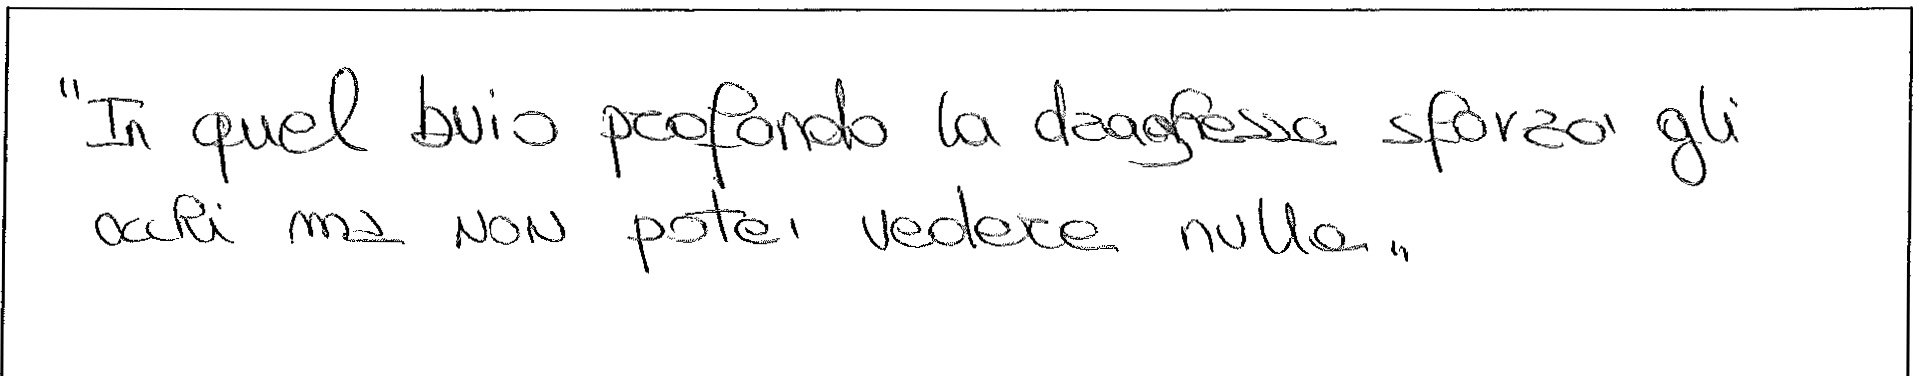 "In quel buio profondo la draghessa sforzo' gli
occhi ma non pote' vedere nulla„